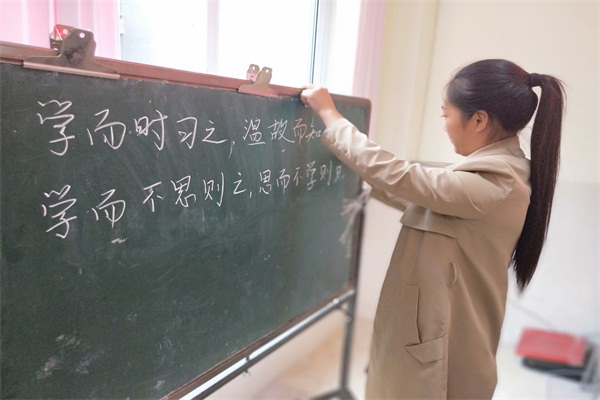 学而时习之,温故而知
学而不思则之,思而不学则